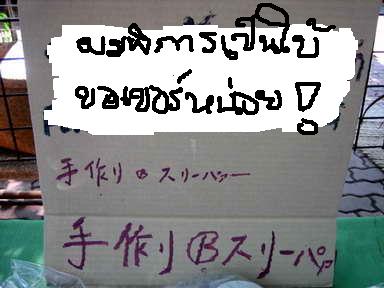 ผมพิการเป็นใบ้
ขอเบอร์หน่อย !
手作り Ⓑ スリーパー
手作り Ⓑ スリーパッ